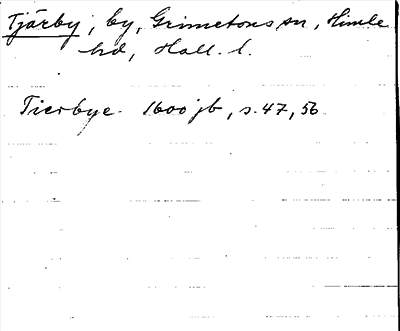 Tjärby, by, Grimetons sn, Himle
hd, Hall. l.
Tierbye. 1600 jb, s. 47, 56